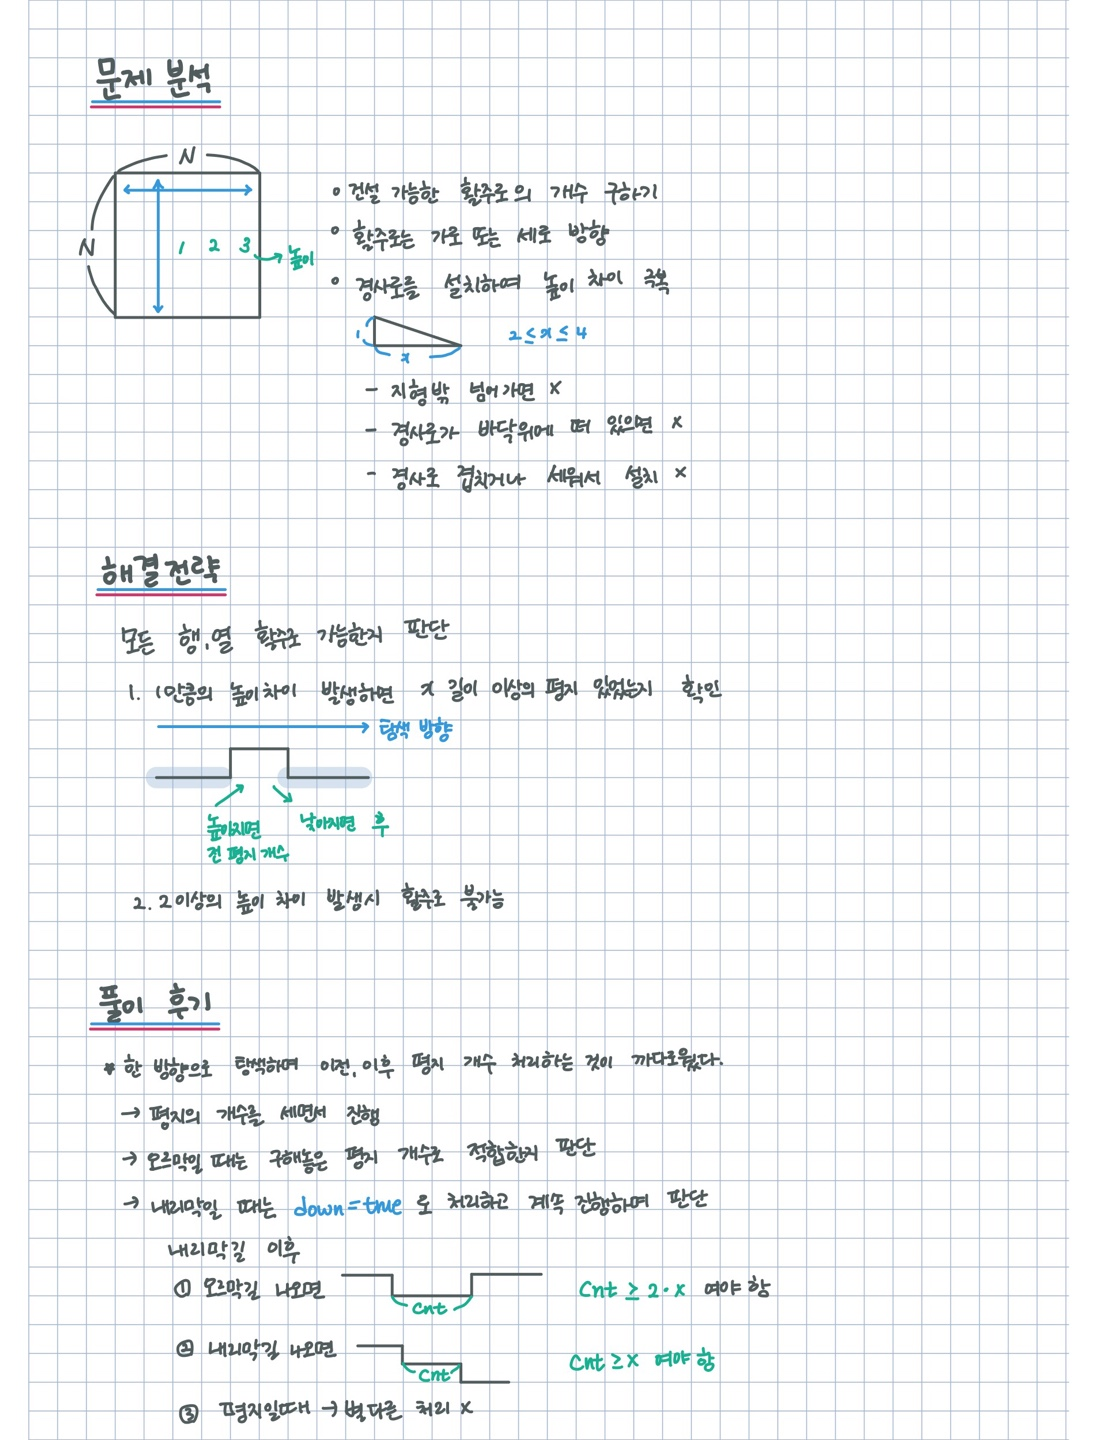 문제 분석
N
N
1 2 3 → 높이
○ 건설 가능한 활주로의 개수 구하기
○ 활주로는 가로 또는 세로 방향
○ 경사로를 설치하여 높이 차이 극복
1
x
2 ≤ x ≤ 4
- 지형밖 넘어가면 x
- 경사로가 바닥위에 떠 있으면 x
- 경사로 겹치거나 세워서 설치 x
해결전략
모든 행, 열 활주로 가능한지 판단
1. 1만큼의 높이차이 발생하면 x 길이 이상의 평지 있었는지 확인
탐색 방향
높아지면 낮아지면 후
전 평지 개수
2. 2이상의 높이 차이 발생시 활주로 불가능
풀이 후기
* 한 방향으로 탐색하며 이전, 이후 평지 개수 처리하는 것이 까다로웠다.
→ 평지의 개수를 세면서 진행
→ 오르막일 때는 구해놓은 평지 개수로 적합한지 판단
→ 내리막일 때는 down=true 로 처리하고 계속 진행하며 판단
내리막길 이후
① 오르막길 나오면 cnt cnt ≥ 2·x 여야 함
② 내리막길 나오면 cnt cnt ≥ x 여야 함
③ 평지일때 → 별다른 처리 x